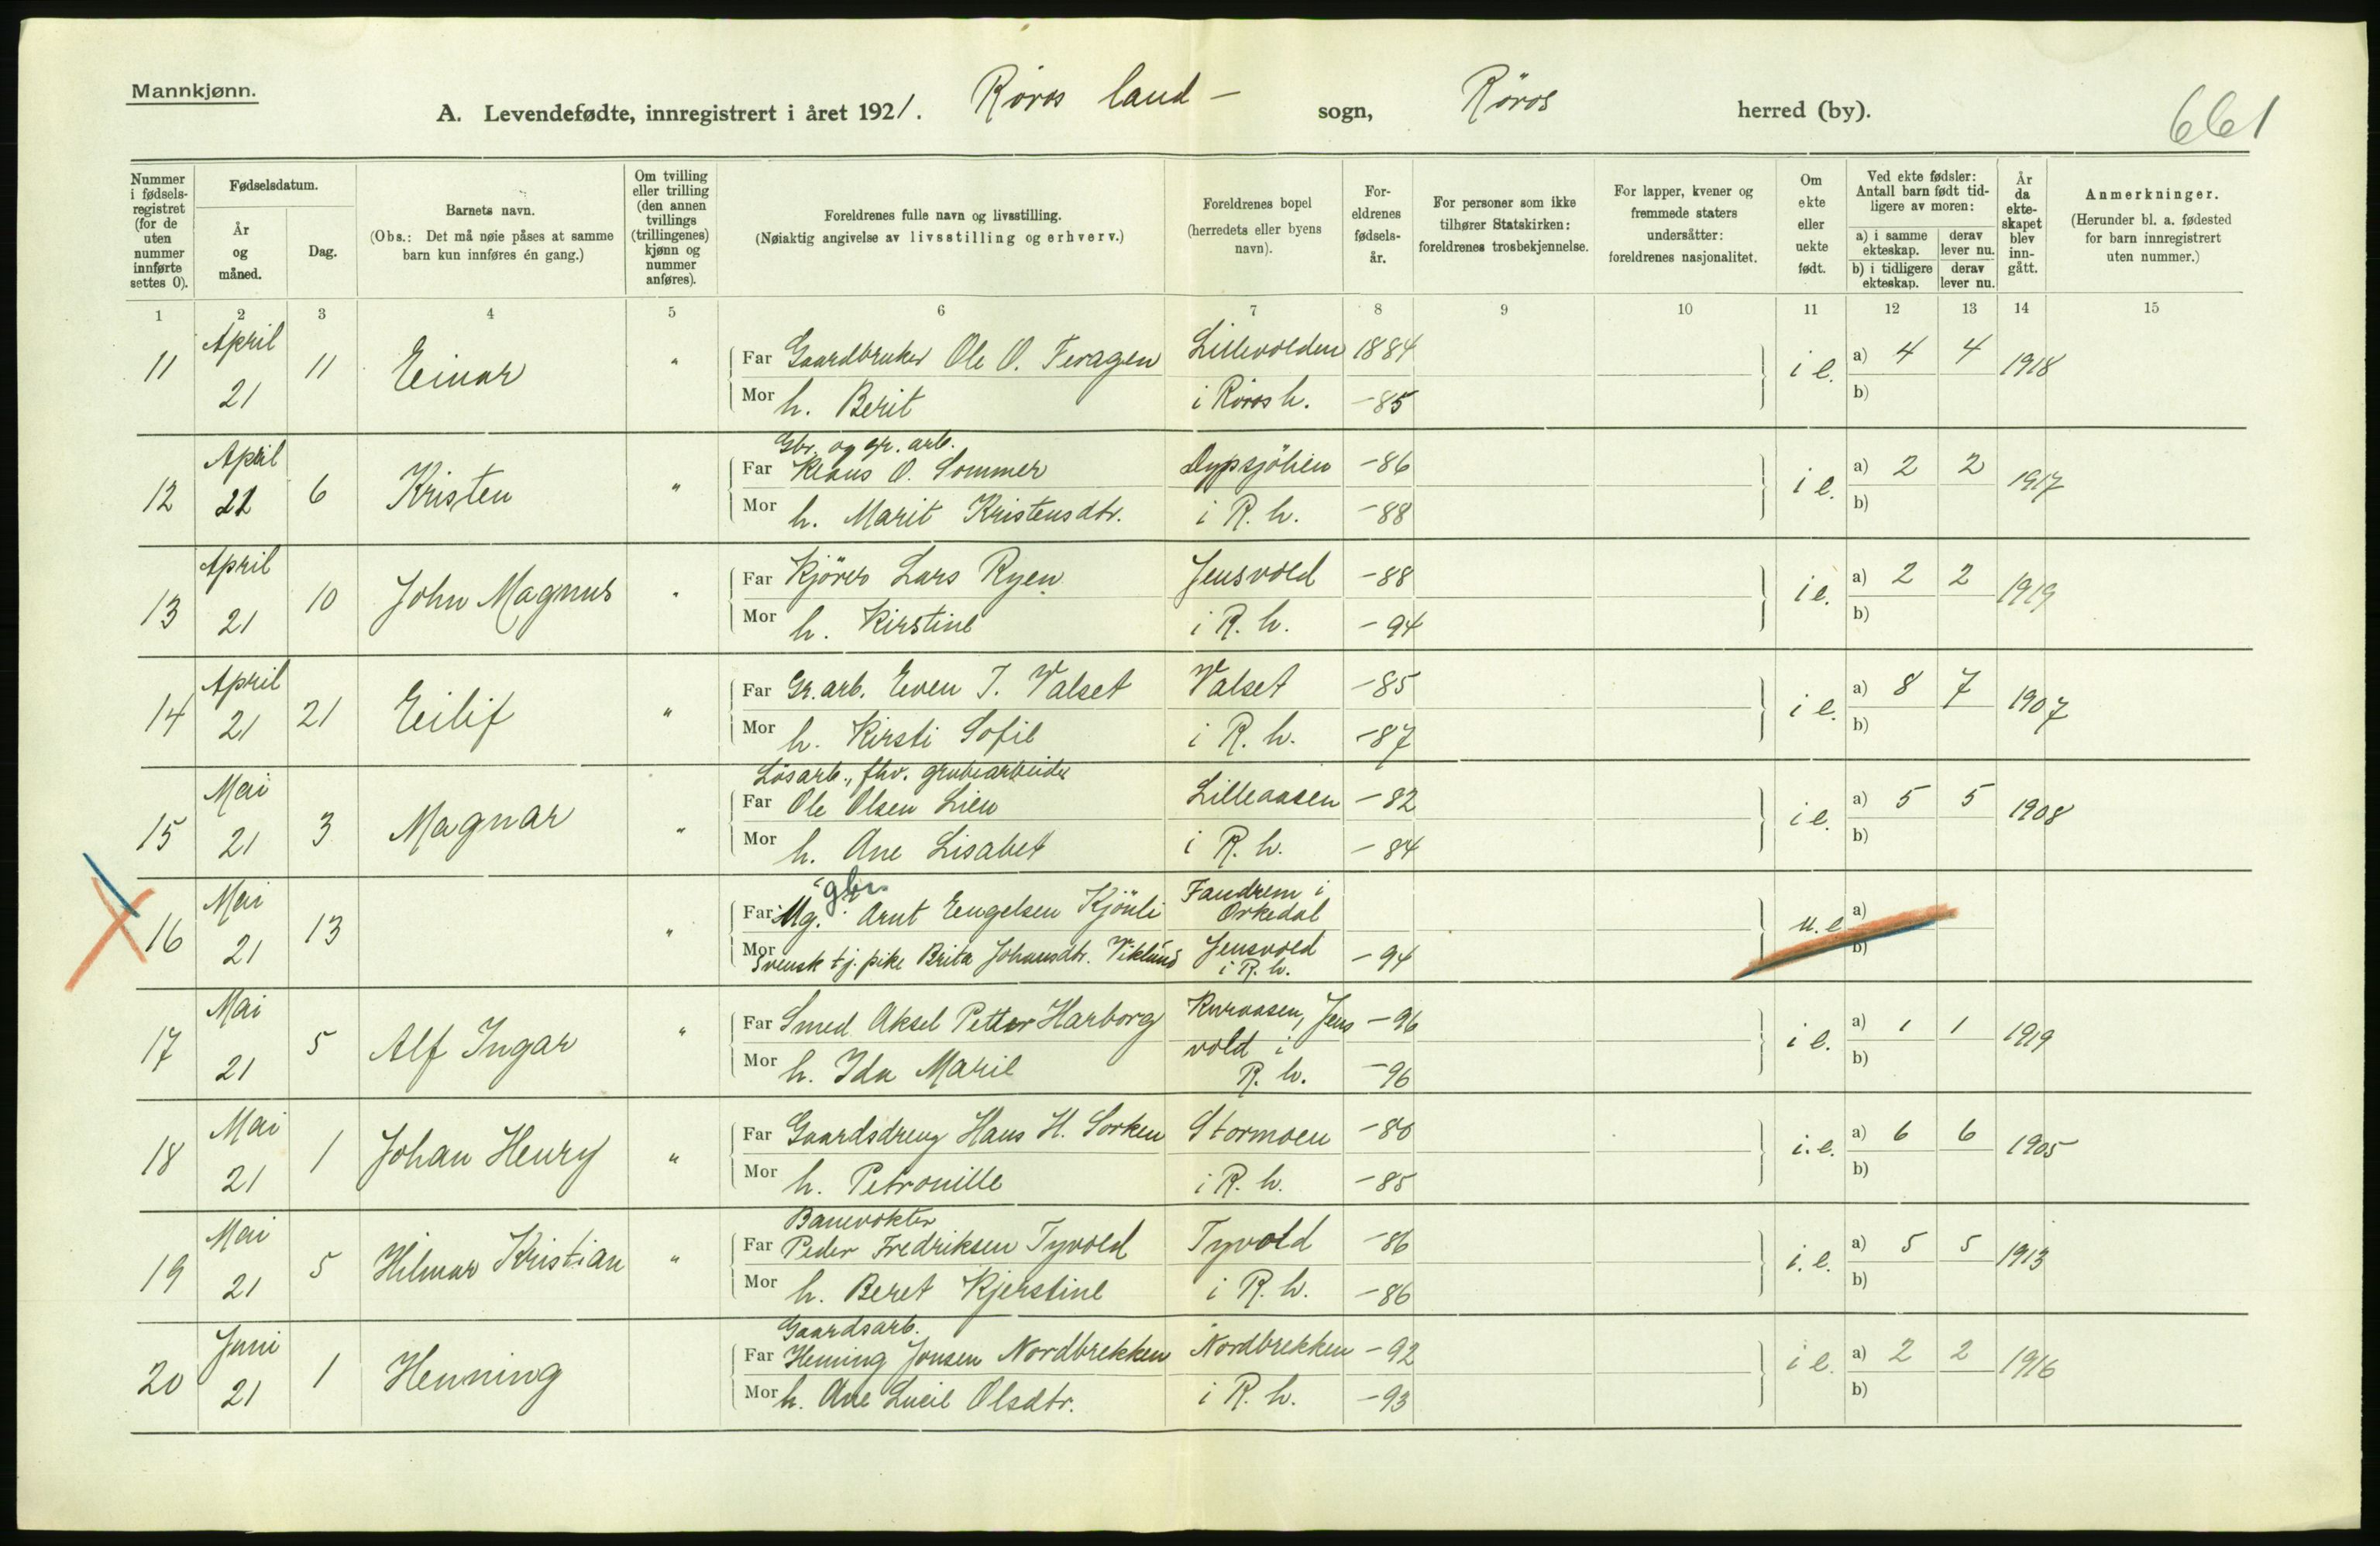 Mannkjønn.
A. Levendefødte, innregistrert i året 1921. Røros land - sogn, Røros herred (by).
661
Nummer i fødsels-registret (for de uten nummer innførte settes 0).
Fødselsdatum.
År og måned.
Dag.
Barnets navn.
(Obs.: Det må nøie påses at samme barn kun innføres én gang.)
Om tvilling eller trilling (den annen tvillings (trillingenes) kjønn og nummer anføres).
Foreldrenes fulle navn og livsstilling.
(Nøiaktig angivelse av livsstilling og erhverv.)
Foreldrenes bopel (herredets eller byens navn).
For-eldrenes fødsels-år.
For personer som ikke tilhører Statskirken: foreldrenes trosbekjennelse.
For lapper, kvener og fremmede staters undersåtter: foreldrenes nasjonalitet.
Om ekte eller uekte født.
Ved ekte fødsler: Antall barn født tid-ligere av moren:
a) i samme ekteskap. derav lever nu.
b) i tidligere ekteskap. derav lever nu.
År da ekte-skapet blev inn-gått.
Anmerkninger.
(Herunder bl. a. fødested for barn innregistrert uten nummer.)
1 2 3 4 5 6 7 8 9 10 11 12 13 14 15
11 April 21 11 Einar " Far Gaardbruker Ole O. Feragen Lillevolden 1884 i e. a) 4 4 1918
Mor h. Berit i Røros h. -85 b)
12 April 21 6 Kristen " Gbr. og gr. arb.
Far Klaus O. Sommer Dypsjölien -86 i e. a) 2 2 1917
Mor h. Marit Kristensdtr. i R. h. -88 b)
13 April 21 10 John Magnus " Far Kjörer Lars Ryen Jensvold -88 i e. a) 2 2 1919
Mor h. Kirstine i R. h. -94 b)
14 April 21 21 Eilif " Far Gr. arb. Even J. Valset Valset -85 i e. a) 8 7 1907
Mor h. Kirsti Sofie i R. h. -87 b)
15 Mai 21 3 Magnar " Lösarb., fhv. grubearbeider
Far Ole Olsen Lien Lilleaasen -82 i e. a) 5 5 1908
Mor h. Ane Lisabet i R. h. -84 b)
16 Mai 21 13 " gbr.
Far Ug. Arnt Engelsen Kjönli Fandrem i Orkedal u. e a)
Mor Svensk tj. pike Brita Johansdtr. Viklund Jensvold i R. h. -94 b)
17 Mai 21 5 Alf Ingar " Far Smed Aksel Petter Harborg Kurvaasen, Jens -96 i e. a) 1 1 1919
Mor h. Ida Marie vold i R. h. -96 b)
18 Mai 21 1 Johan Henry " Far Gaardsdreng Hans H. Sorken Stormoen -80 i. e. a) 6 6 1905
Mor h. Petronille i R. h. -85 b)
19 Mai 21 5 Hilmar Kristian " Banevokter
Far Peder Fredriksen Tyvold Tyvold -86 i. e. a) 5 5 1913
Mor h. Beret Kjerstine i R. h. -86 b)
20 Juni 21 1 Henning Gaardsarb.
Far Heming Jonsen Nordbrekken Nordbrekken -92 i e. a) 2 2 1916
Mor h. Ane Lucie Olsdtr. i R. h. -93 b)